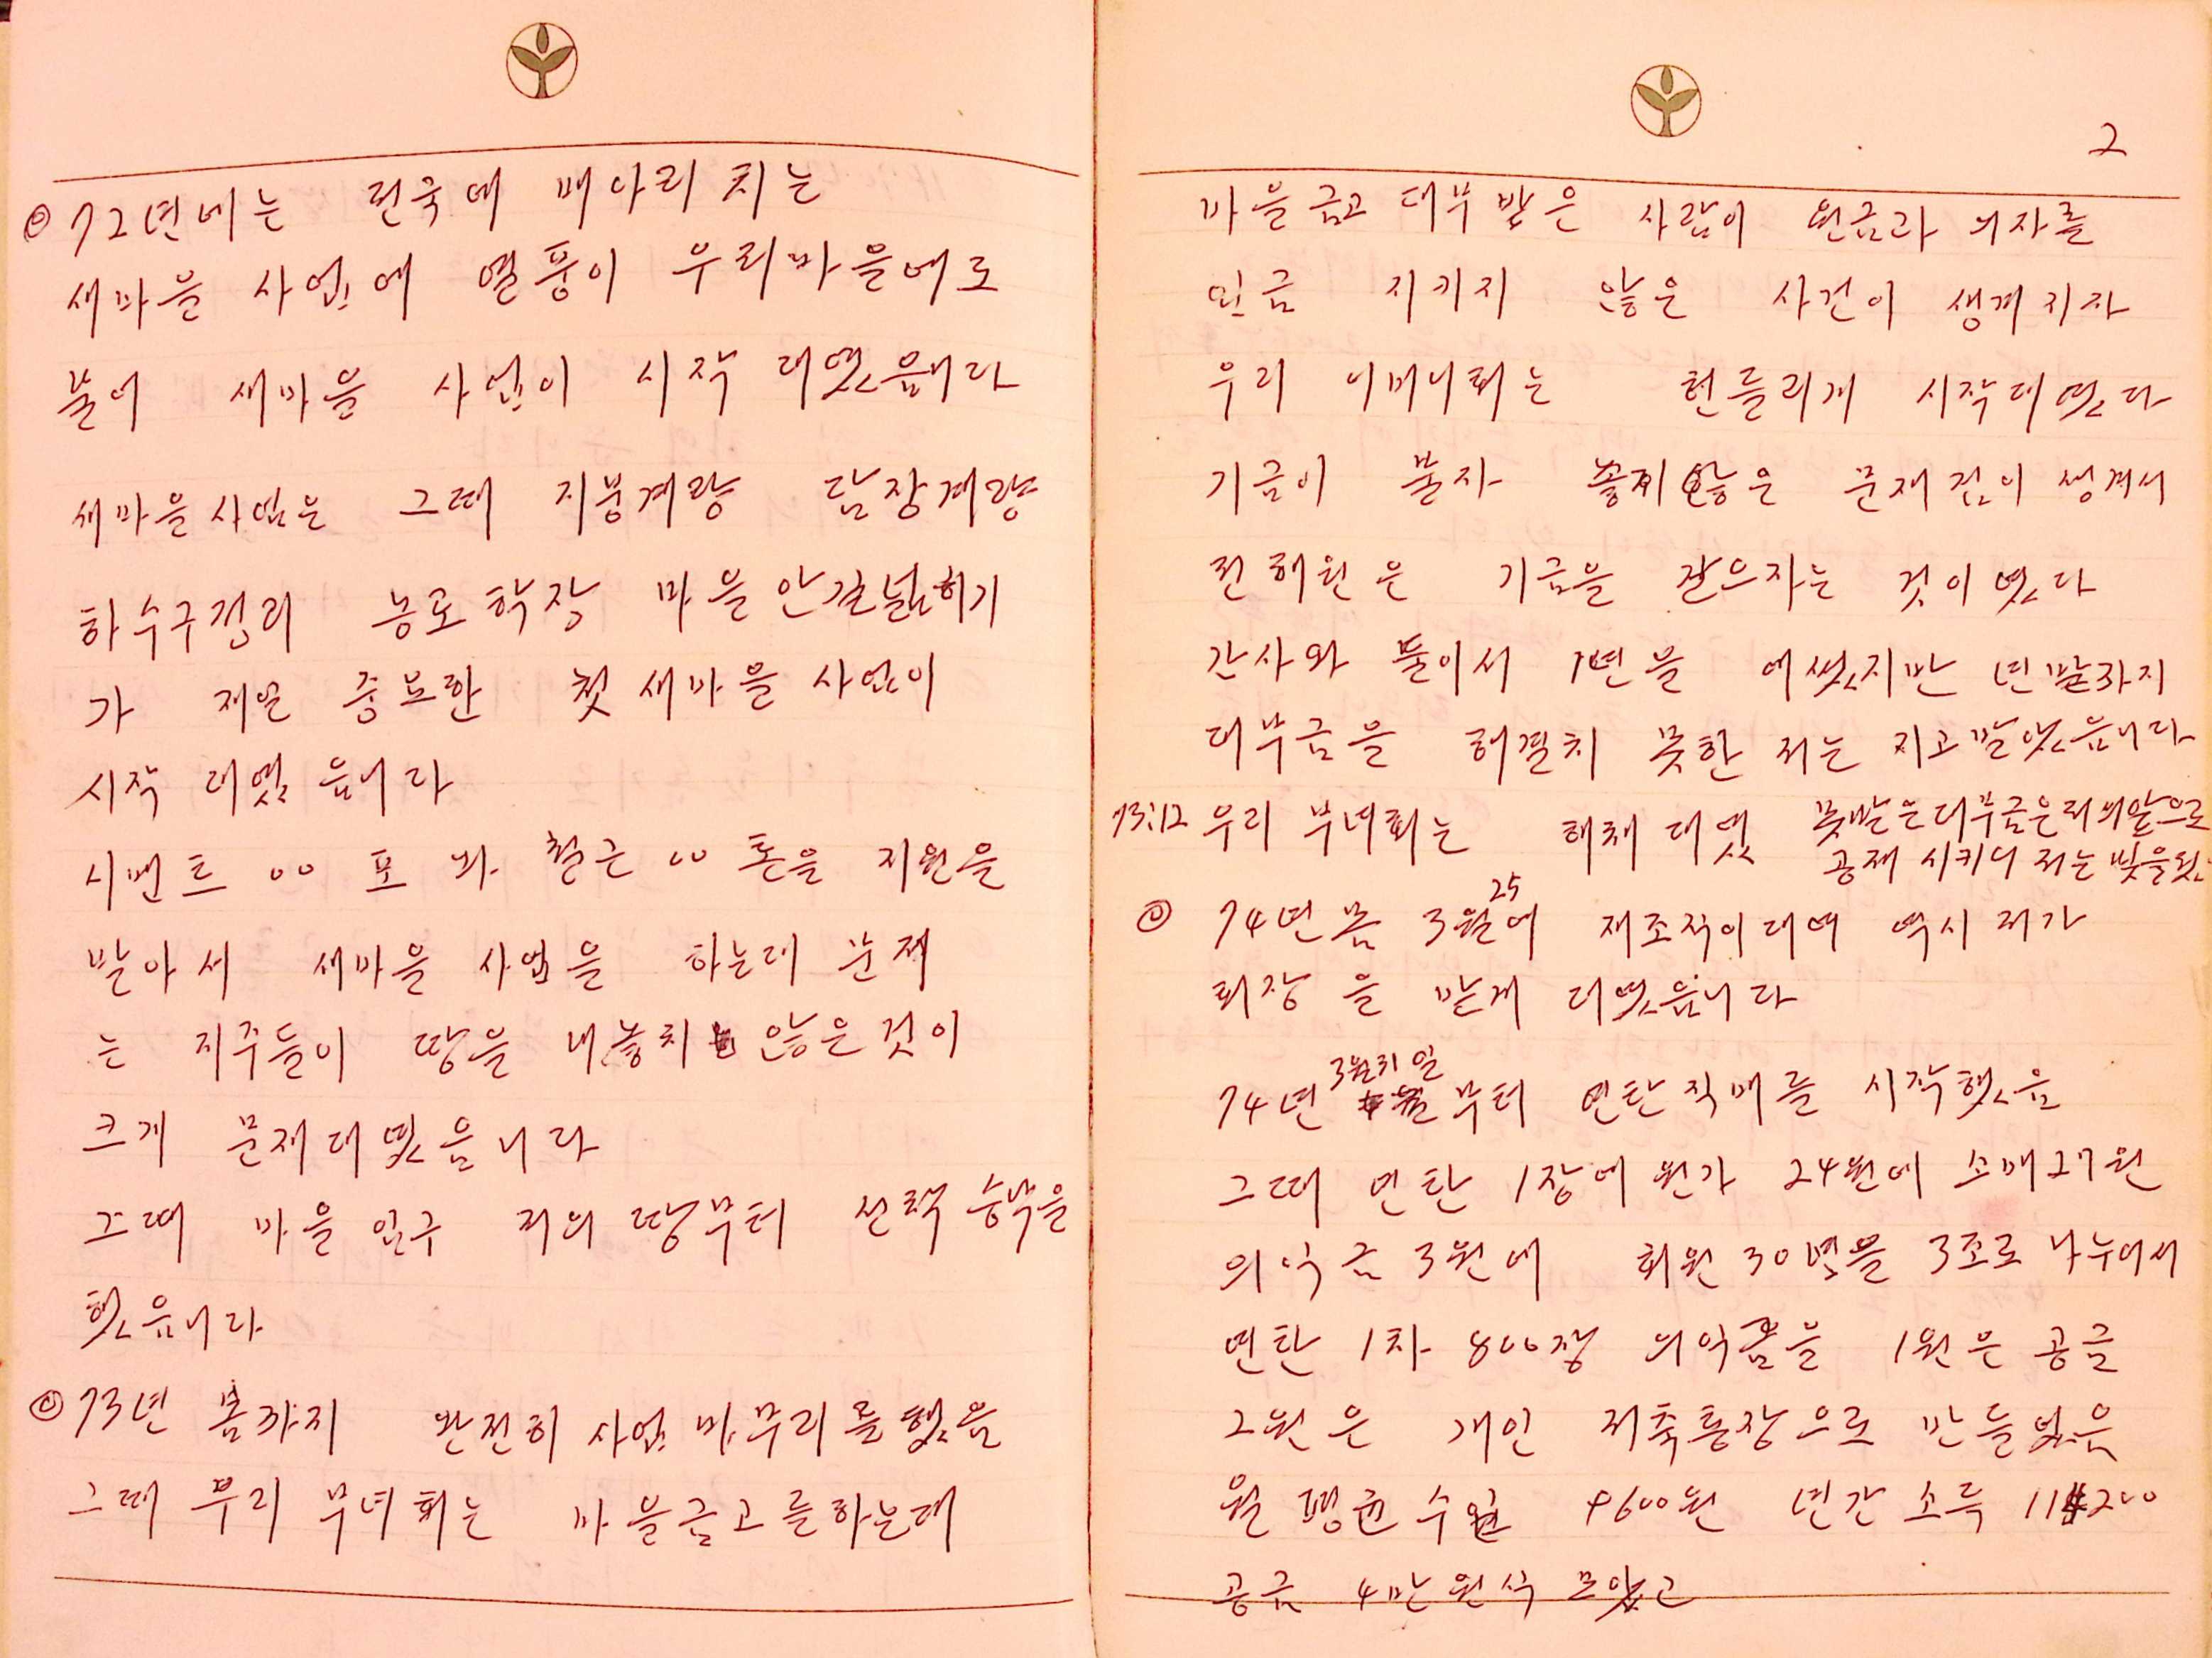 ◎ 72년에는 전국에 메아리 치는
새마을 사업에 열풍이 우리마을에도
불어 새마을 사업이 시작 대였읍니다
새마을사업은 그때 지붕계량 담장계량
하수구정리 농로확장 마을안길넓히기
가 재일 중요한 첫 새마을 사업이
시작 대였읍니다
시멘트 00 포 와 철근 00 톤을 지원을
받아서 새마을 사업을 하는대 문제
는 지주들이 땅을 내놓치 않은것이
크게 문재대였읍니다
그때 마을입구 저의 땅부터 선택 승락을
했읍니다
◎ 73년 봄까지 완전히 사업 마무리를했음
그때 우리 부녀회는 마을금고를하는대
2
마을금고 대부 받은 사람이 원금과 의자를
입금 지키지 않은 사건이 생겨지자
우리 어머니회는 헌들리게 시작대였다
기금이 불자 좋치않은 문재점이 생겨서
전해원은 기금을 갈으자는 것이였다
간사와 둘이서 1년을 애썼지만 년말까지
대부금을 해결치 못한 저는 지고말았읍니다
73:12 우리 부녀회는 해체 대였 못받은대부금은저의앞으로
공재 시키더 저는 빚을젔
◎ 74년봄 3월25에 재조직이대여 역시 저가
회장을 맡게 되였읍니다
74년 3월31일부터 연탄직매를 시작했음
그때 연탄 1장에 원가 24원에 소매27원
의익금 3원에 회원 30명을 3조로 나누어서
연탄 1차 800장 의익금을 1원은 공금
2원은 개인 저축통장으로 만들었음
월 평균수입 9600원 년간소득 114200
공금 4만원식 모았고